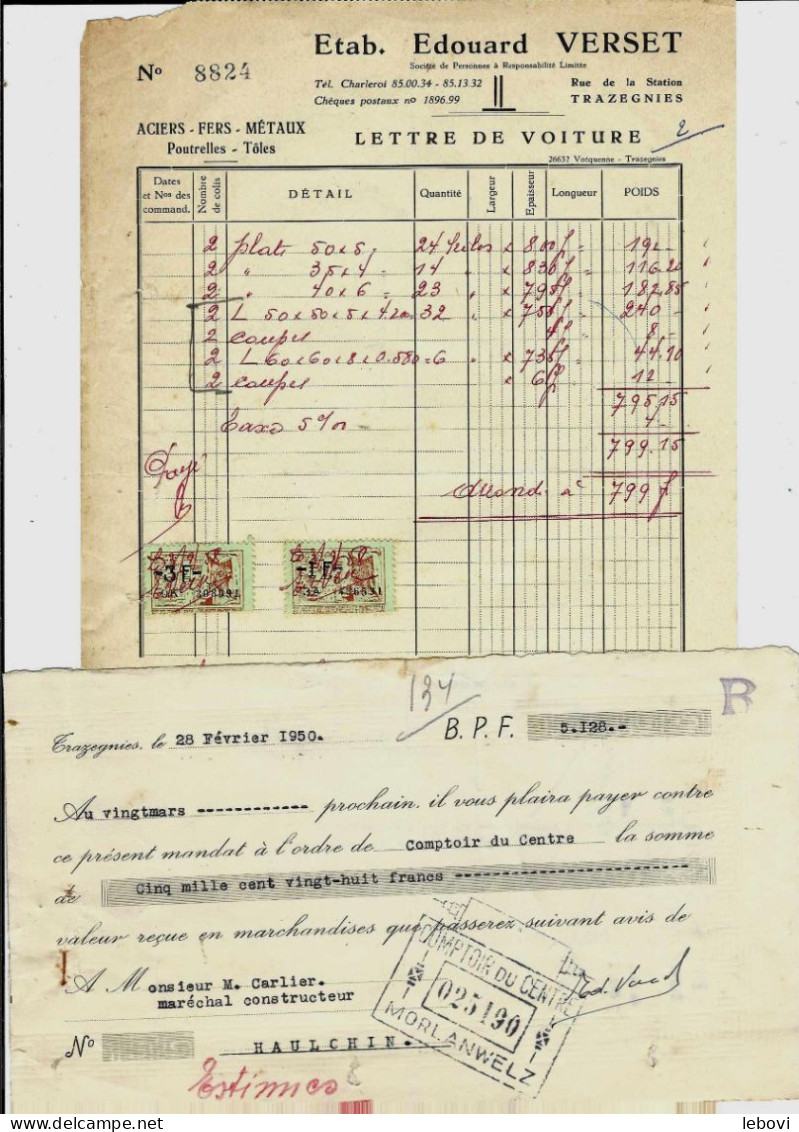 Etab. Edouard VERSET
Société de Personnes à Responsabilité Limitée
No 8824
Tél. Charleroi 85.00.34 - 85.13.32
Chèques postaux no 1896.99
Rue de la Station
TRAZEGNIES
ACIERS - FERS - MÉTAUX
Poutrelles - Tôles
LETTRE DE VOITURE
2
26632 Votquenne - Trazegnies
Dates et Nos des command. Nombre de colis DÉTAIL Quantité Largeur Epaisseur Longueur POIDS
2 plats 50x5 24 kilos x 800f 192-
2 " 35x4 14 " x 830f 116.20
2 " 40x6 23 " x 795f 182.85
2 L 50x50x5x4200 32 " x 750f 240-
2 coupes 4f 8-
2 L 60x60x8x0.580 = 6 x 735f 44.10
2 coupes x 6f 12
795.15
Taxe 5 4-
799.15
Payé
à 799 f
-3F-
-1F-
134
B
Trazegnies, le 28 Février 1950.
B.P.F. 5.128.-
Au vingtmars ------------ prochain, il vous plaira payer contre
ce présent mandat à l'ordre de Comptoir du Centre la somme
de Cinq mille cent vingt-huit francs
valeur reçue en marchandises que passerez suivant avis de
A Monsieur M. Carlier.
maréchal constructeur
No
HAULCHIN.
COMPTOIR DU CENTRE
025190
MORLANWELZ
Estinnes
8
8
www.delcampe.net
lebovi